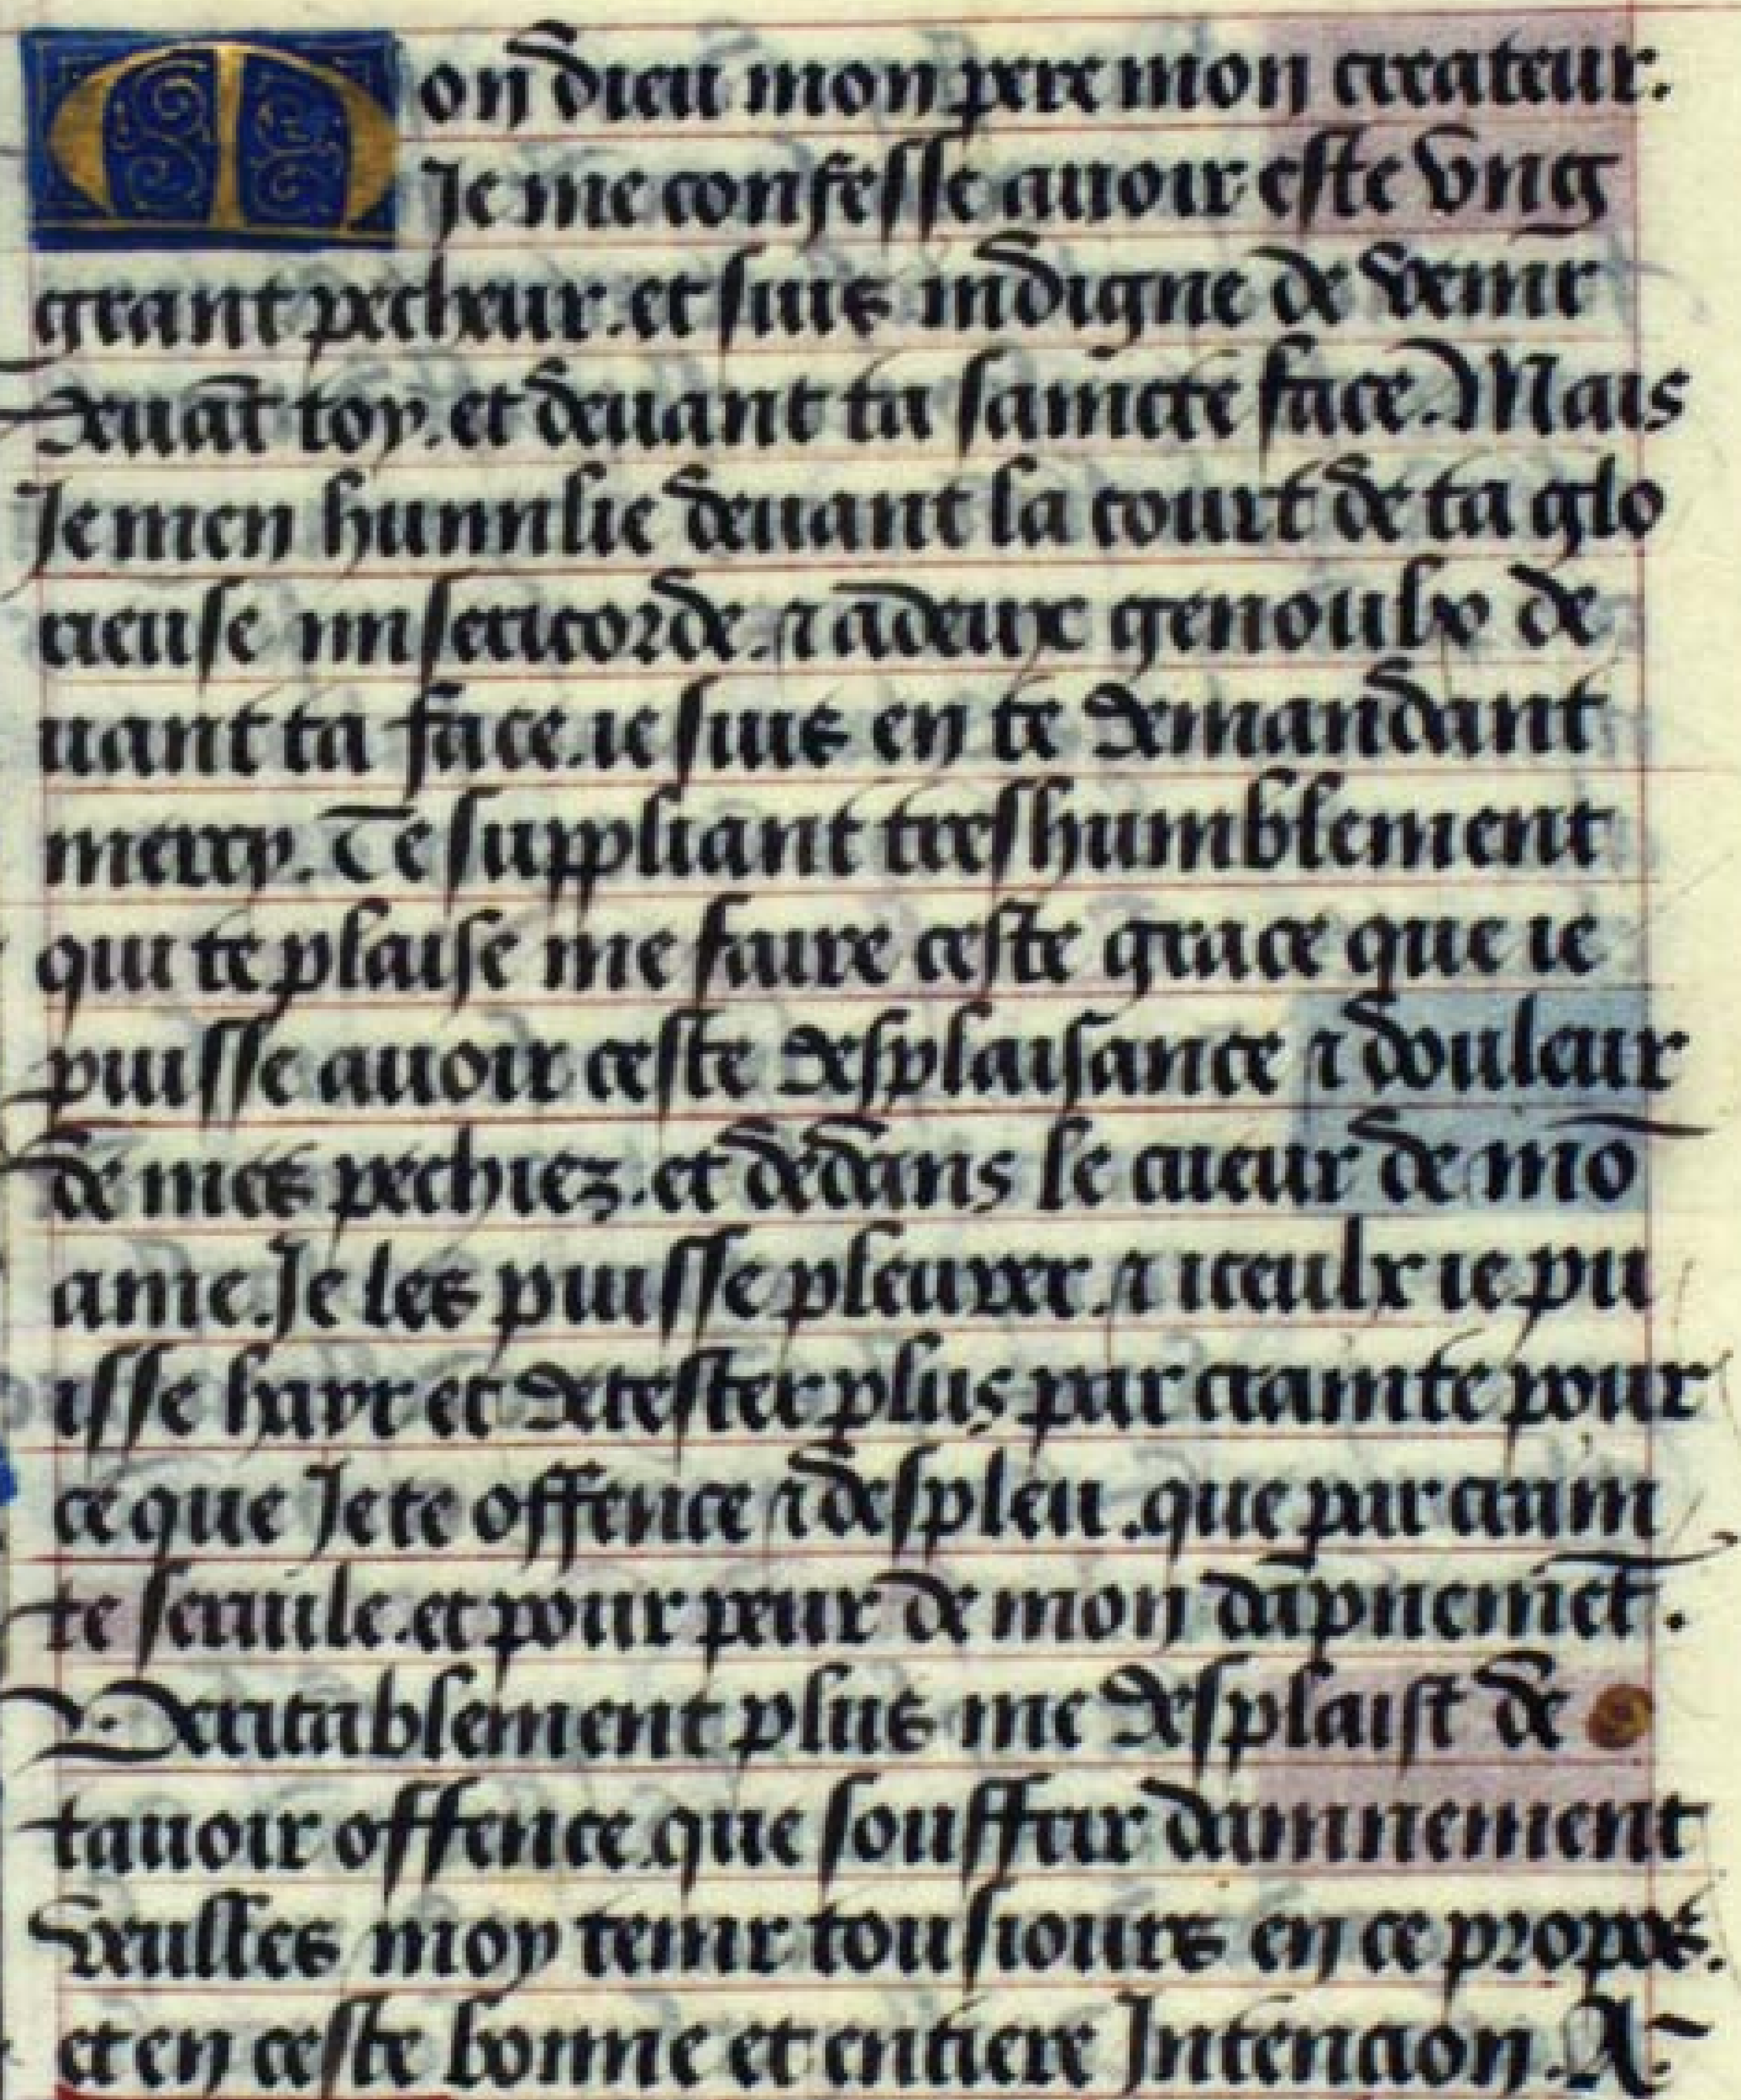 Mon dieu mon pere mon createur.
Je me confesse auoir este vng
grant pecheur. et suis indigne de venir
deuāt toy. et deuant ta saincte face. Mais
Je men humilie deuant la court de ta glo
rieuse misericorde. ⁊ a deux genoulx de
uant ta face. ie suis en te demandant
mercy. Te suppliant treshumblement
qui te plaise me faire ceste grace que ie
puisse auoir ceste desplaisance ⁊ douleur
de mes pechiez. et dedans le cueur de mō
ame. Je les puisse pleurer. ⁊ iceulx ie pu
isse hayr et detester plus par crainte pour
ce que Je te offence ⁊ despleu. que par crain
te seruile. et pour peur de mon dāpnemēt.
Veritablement plus me desplaist de
tauoir offence. que souffrir damnement
veulles moy tenir tousiours en ce propos.
et en ceste bonne et entiere Jntencion. A-